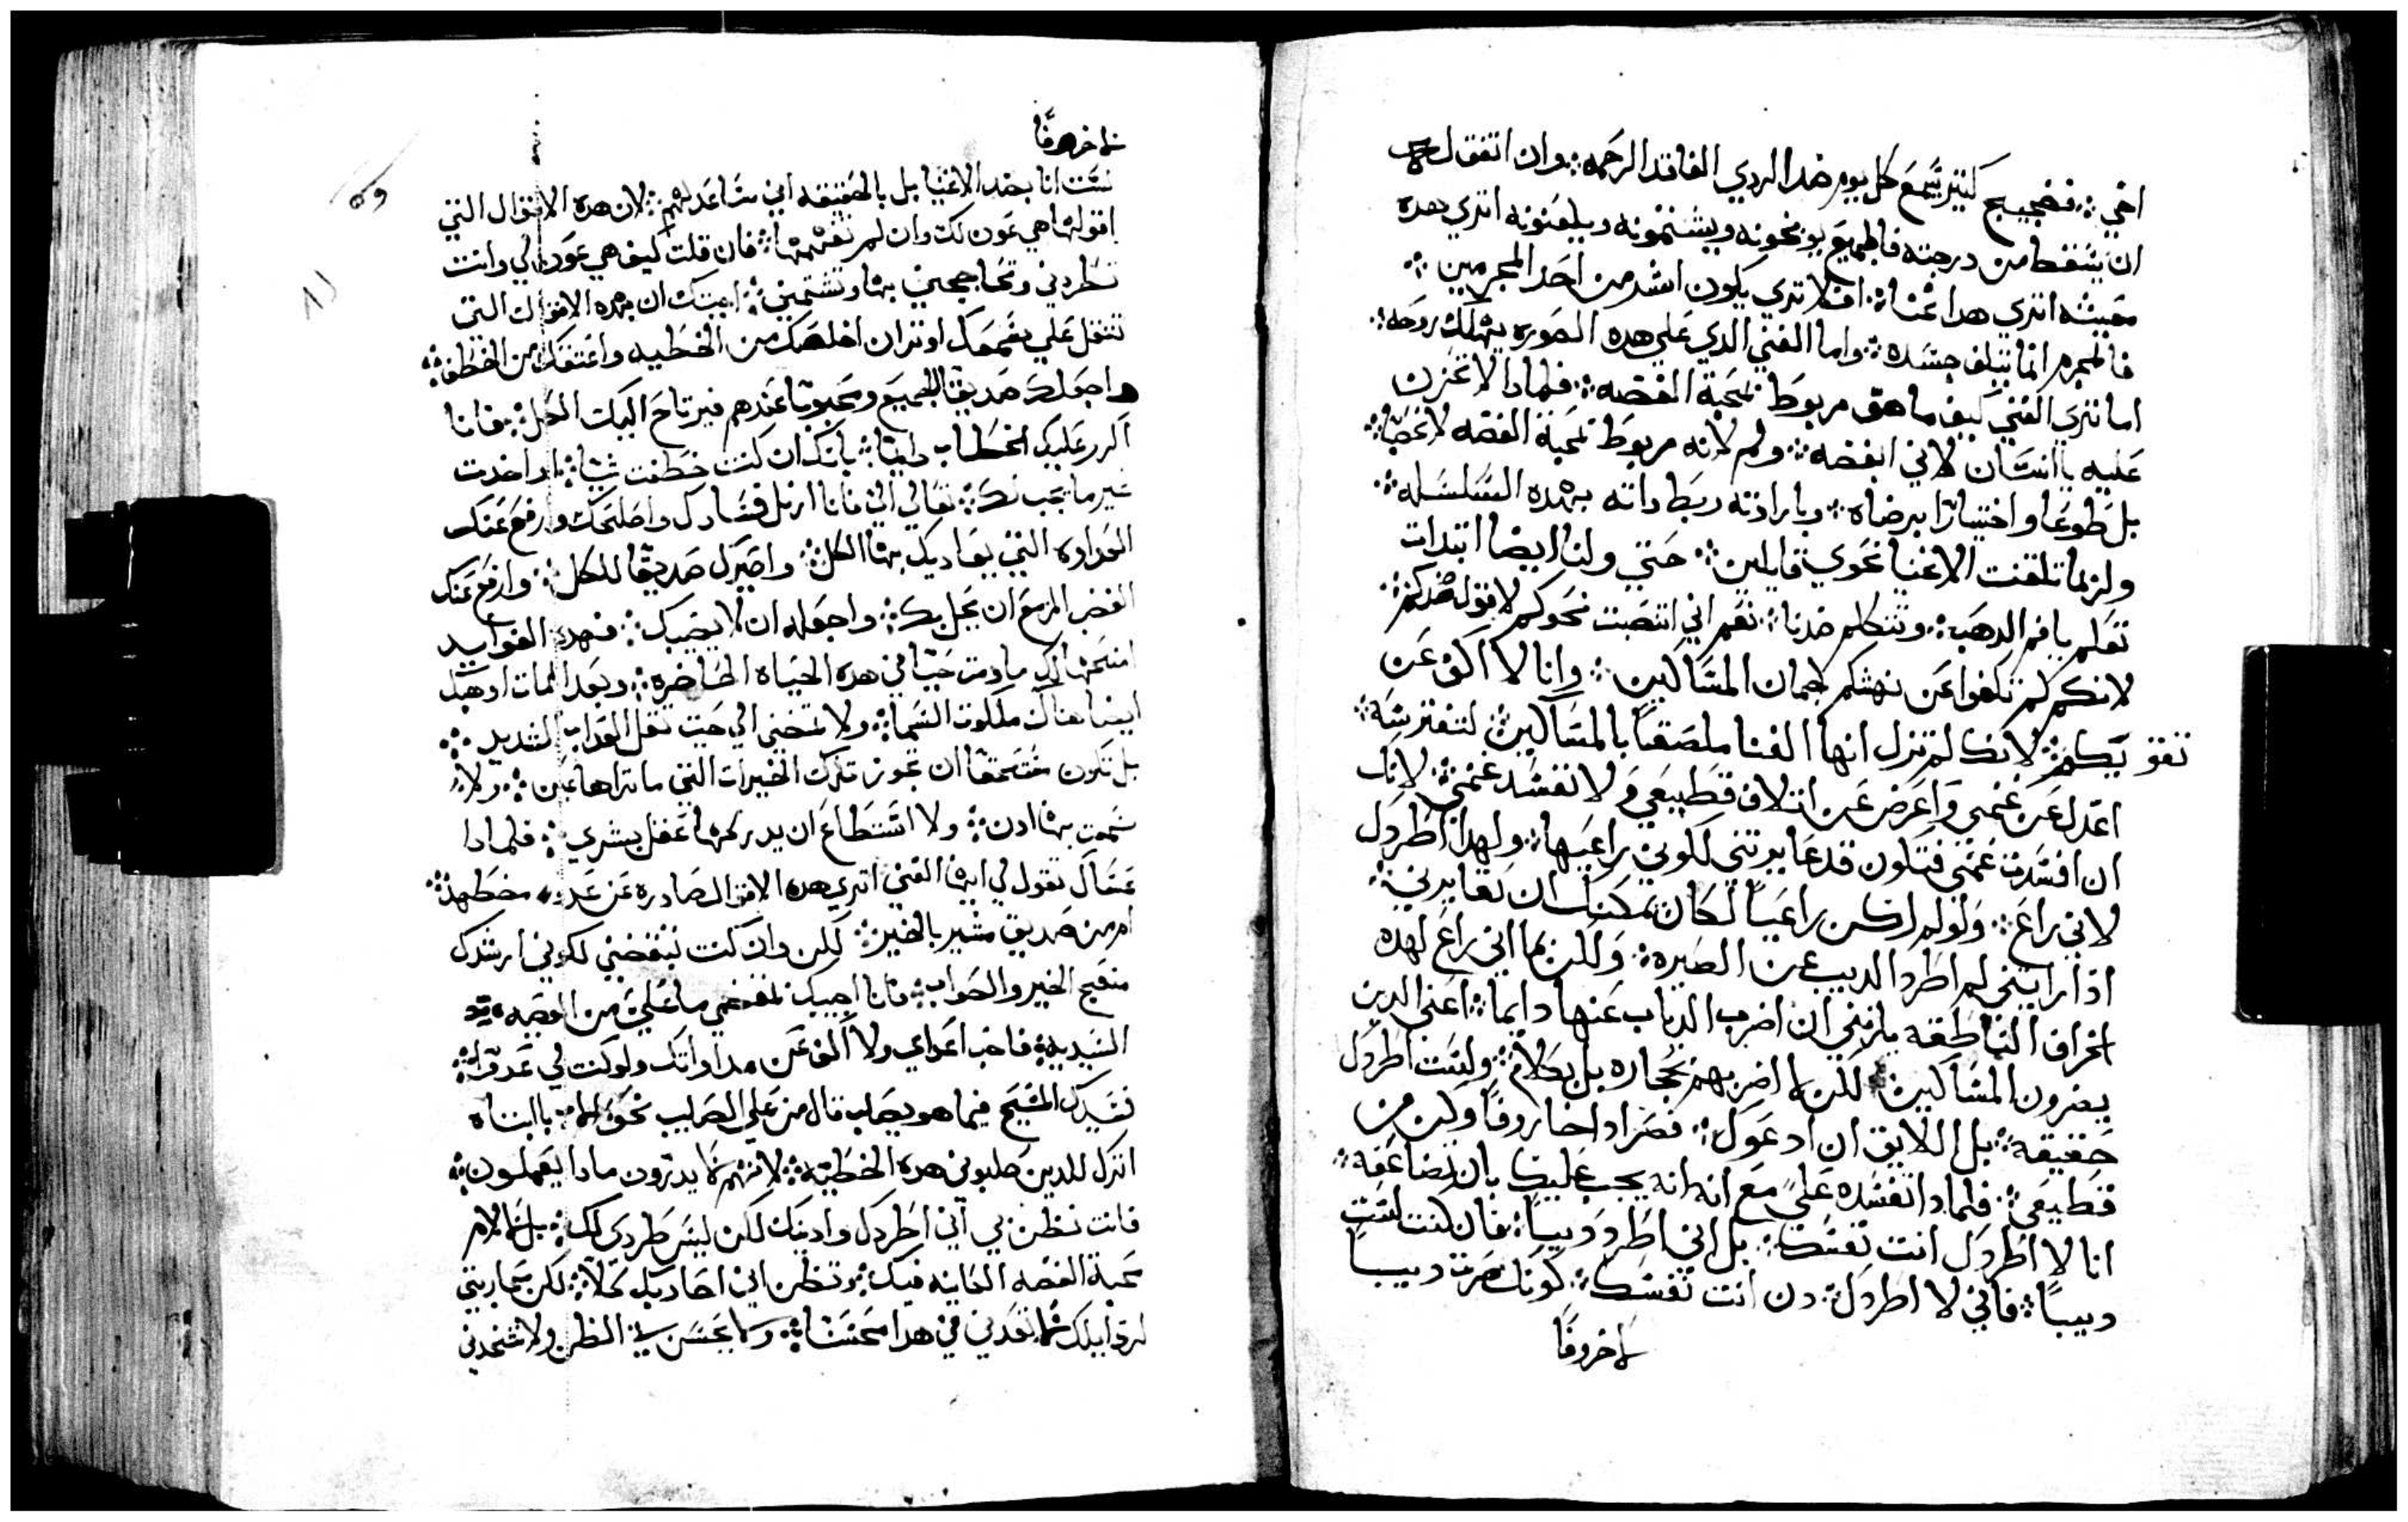 اخي ፨ فضجيج كتير يسمع كل يوم ضد الردي الفاقد الرحمه ፨ وان اتفق له
ان يسقط من درجته فالجميع يوبخونه ويشتمونه ويلعنونه اتري هده
معيشه اتري هدا غنا ፨ افلا تري يكون اشد من احد المجرمين ፨
فالمجرم انما يتلف جسده ፨ واما الغني الدي علي هده الصوره يهلك روحه ፨
اما تري الغني كيف ما هو مربوط بمحبة الفضه ፨ فلمادا لا تحزن
عليه يا انسان لاني ابغضه ፨ ولم لانه مربوط بمحبة الفضه لا غصبا ፨
بل طوعا واختيارا برضاه ፨ وبارادته ربط داته بهده السلسله ፨
ولربما تلفتت الاغنيا نحوي قايلين ፨ حتي ولنا ايضا ابتدات
تعلم يا فم الدهب ፨ وتتكلم ضدنا ፨ نعم اني انتصبت نحوكم لا قوله ضدكم ፨
لانكم لم تكفوا عن نهشكم لحمان المساكين ፨ وانا لا اكف عن
تفويبكم ፨ لانك لم تزل ايها الغنا ملصقا بالمساكين لتفترسه ፨
اعدل عن غنمي واعرض عن اتلاف قطيعي ولا تفسد غنمي ፨ لانك
ان افسدت غنمي فتكون قد عايرتني لكوني راعيها ፨ ولهدا اطردك
لاني راع ፨ ولو لم اكن راعيا لكان يمكنك ان تعايرني ፨
ادا رايتني لم اطرد الديب عن الصيره ፨ ولكن بما اني راع لهده
الخراف الناطقه يلزمني ان اضرب الدياب عنها دايما ፨ اعني الدين
يضرون المساكين ፨ لكن لا اضربهم بحجاره بل بكلام ፨ ولست اطردك
حقيقه ፨ بل اللايق ان ادعوك ፨ فصر ادا خاروفا وكن من
قطيعي ፨ فلمادا تفسده علي مع انه انه يجب عليك بان تضاعفه ፨
انا لا اطردك انت نفسك ፨ بل اني اطرد ديبا ፨ فان كنت لست
ديبا ፨ فاني لا اطردك ፨ دن انت نفسك ፨ كونك صرت ديبا
لا خروفا
لا خروفا
لست انا بضد الاغنيا بل بالحقيقه اني مساعد لهم ፨ لان هده الاقوال التي
اقولها هي عون لك وان لم تفهمها ፨ فان قلت كيف هي عون لي وانت
تطردني وتحاججني بها وتشتمني ፨ اجبتك ان بهده الاقوال التي
تتقل علي بغمك اوتر ان اخلصك من الخطيه واعتقك من الخطف ፨
واجعلك صديقا للجميع ومحبوبا عندهم فيرتاح اليك الكل ፨ فانا
اكرر عليك الخطاب بانك ان كنت خطفت شيا ፨ او اخدت
غير ما يجب لك ፨ تعالي الي فانا ازيل فسادك واصلحك وارفع عنك
العداوه التي يعاديك بها الكل ፨ واصيرك صديقا للكل ፨ وارفع عنك
الغضب المزمع ان يحل بك ፨ واجعله ان لا يصيبك ፨ فهده الفوايد
امنحها لك ما دمت حيا في هده الحياه الحاضره ፨ وبعد الممات اوهبك
ايضا هناك ملكوت السما ፨ ولا تمضي الي حيت تقل العداب الشديد ፨
بل تكون مستحقا ان تحوز تلك الخيرات التي ما تراها عين ፨ ولا
سمعت بها ادن ፨ ولا استطاع ان يدركها عقل بشري ፨ فلمادا
عساك تقول لي ايها الغني اتري هده الاقوال صادره عن عدو مضطهد ፨
ام من صديق مشير بالخير ፨ لكن وان كنت تبغضني لكوني ارشدك
منهج الخير والصواب ፨ فانا احبك
السيديه ፨ فاحب اعداي ولا اكف عن مداواتك ولو كنت لي عدوا ፨
فسيدك المسيح فيما هو يصلب قال من علي الصليب نحو يا ابتاه
اترك للدين صلبوني هده الخطيه ፨ لانهم لا يدرون مادا يعملون ፨
فانت تظن بي اني اطردك واديك لكن ليس طردي لك ፨ بل لالام
محبة الفضه الكاينه فيك ፨ وتظن اني احاربك كلا ፨ لكن محاربتي
لردايلك تعدني في هدا محسنا ፨ ولا تحسن لي الظن ولا تتخدني